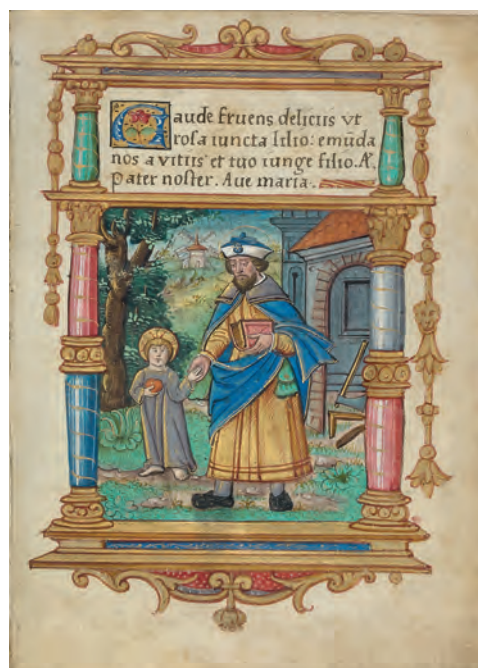 Gaude fruens deliciis vt
rosa iuncta lilio: emūda
nos a vitiis et tuo iunge filio. Æ.
Pater noster. Aue maria.